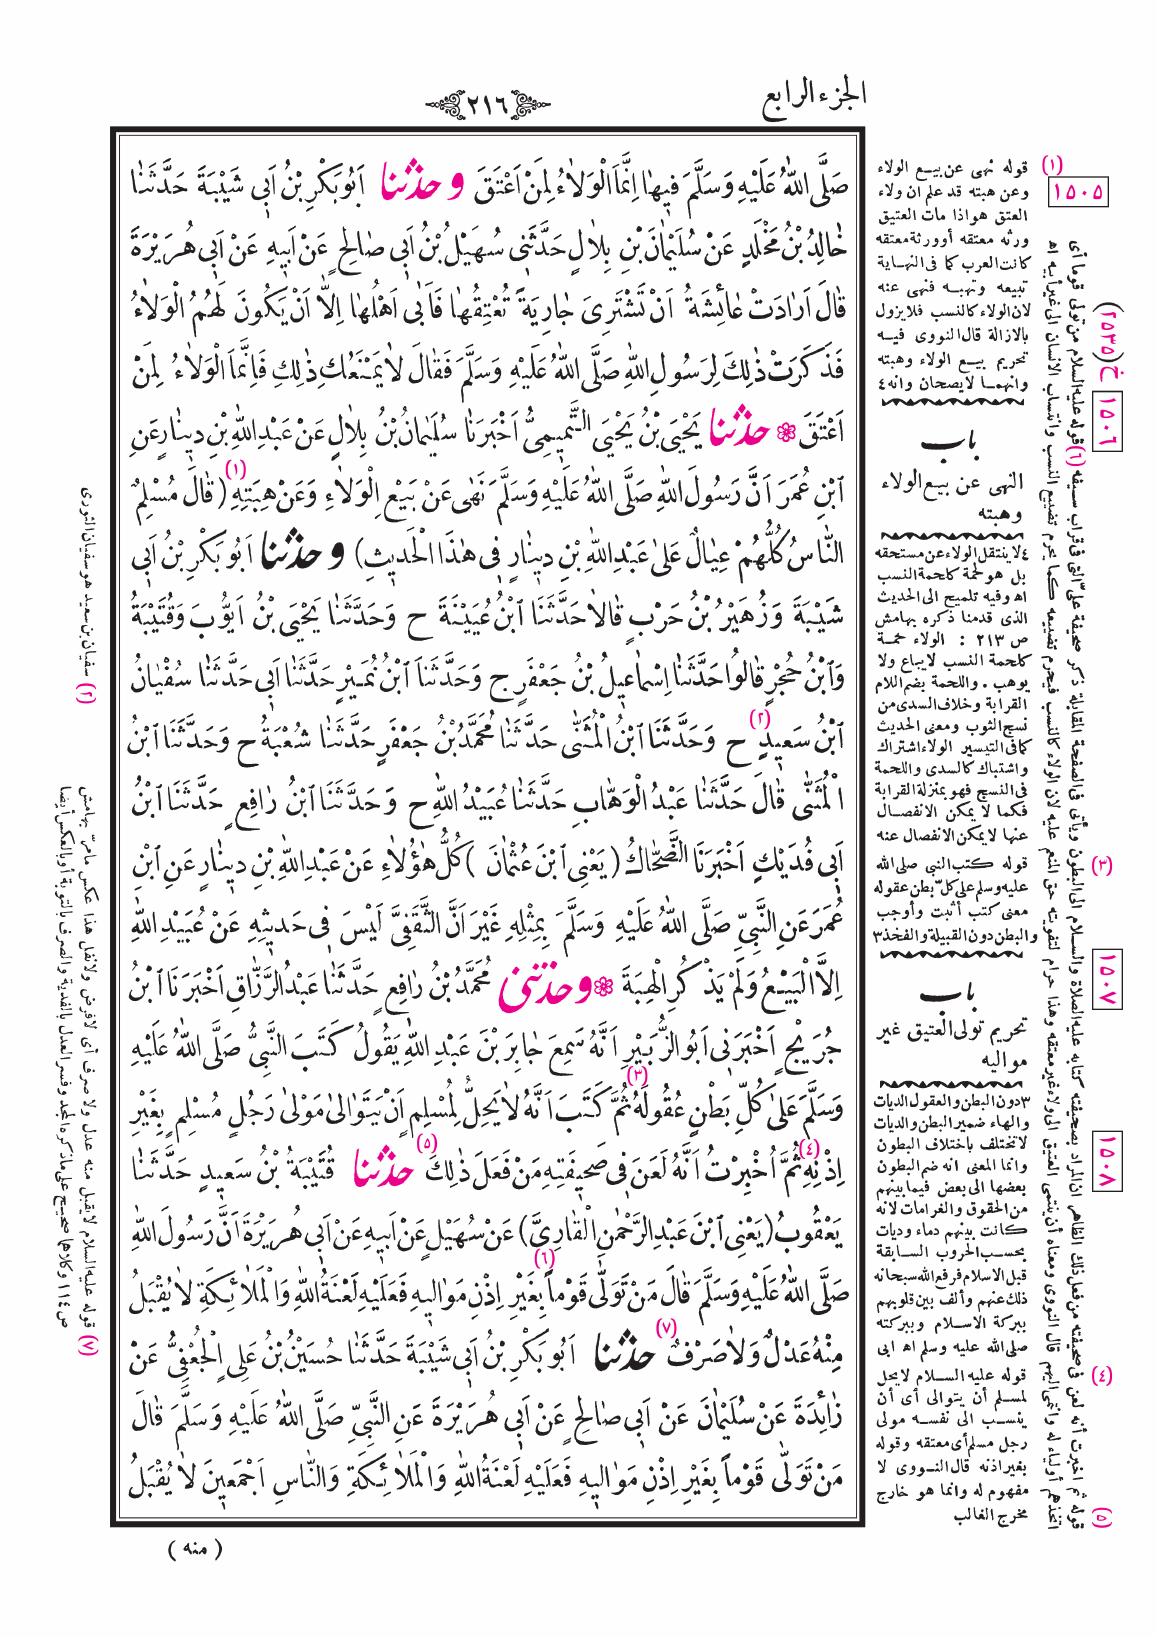 الجزء الرابع
٢١٦
صَلَّى اللهُ عَلَيْهِ وَسَلَّمَ فِيهَا اِنَّمَا الْوَلَاءُ لِمَنْ اَعْتَقَ وحدثنا اَبُوبَكْرِ بْنُ اَبِى شَيْبَةَ حَدَّثَنَا
خَالِدُ بْنُ مَخْلَدٍ عَنْ سُلَيْمَانَ بْنِ بِلَالٍ حَدَّثَنِى سُهَيْلُ بْنُ اَبِى صَالِحٍ عَنْ اَبِيهِ عَنْ اَبِى هُرَيْرَةَ
قَالَ اَرَادَتْ عَائِشَةُ اَنْ تَشْتَرِىَ جَارِيَةً تُعْتِقُهَا فَاَبَى اَهْلُهَا اِلَّا اَنْ يَكُونَ لَهُمُ الْوَلَاءُ
فَذَكَرَتْ ذٰلِكَ لِرَسُولِ اللهِ صَلَّى اللهُ عَلَيْهِ وَسَلَّمَ فَقَالَ لَا يَمْنَعُكِ ذٰلِكِ فَاِنَّمَا الْوَلَاءُ لِمَنْ
اَعْتَقَ ۞ حدثنا يَحْيَى بْنُ يَحْيَى التَّمِيمِىُّ اَخْبَرَنَا سُلَيْمَانُ بْنُ بِلَالٍ عَنْ عَبْدِاللهِ بْنِ دِينَارٍ عَنِ
ابْنِ عُمَرَ اَنَّ رَسُولَ اللهِ صَلَّى اللهُ عَلَيْهِ وَسَلَّمَ نَهٰى عَنْ بَيْعِ الْوَلَاءِ وَعَنْ هِبَتِهِ (١) (قَالَ مُسْلِمٌ
النَّاسُ كُلُّهُمْ عِيَالٌ عَلٰى عَبْدِاللهِ بْنِ دِينَارٍ فِى هٰذَا الْحَدِيثِ) وحدثنا اَبُو بَكْرِ بْنُ اَبِى
شَيْبَةَ وَزُهَيْرُ بْنُ حَرْبٍ قَالَا حَدَّثَنَا ابْنُ عُيَيْنَةَ ح وَحَدَّثَنَا يَحْيَى بْنُ اَيُّوبَ وَقُتَيْبَةُ
وَابْنُ حُجْرٍ قَالُوا حَدَّثَنَا اِسْمَاعِيلُ بْنُ جَعْفَرٍ ح وَحَدَّثَنَا ابْنُ نُمَيْرٍ حَدَّثَنَا اَبِى حَدَّثَنَا سُفْيَانُ
ابْنُ سَعِيدٍ (٢) ح وَحَدَّثَنَا ابْنُ الْمُثَنّٰى حَدَّثَنَا مُحَمَّدُ بْنُ جَعْفَرٍ حَدَّثَنَا شُعْبَةُ ح وَحَدَّثَنَا ابْنُ
الْمُثَنّٰى قَالَ حَدَّثَنَا عَبْدُ الْوَهَّابِ حَدَّثَنَا عُبَيْدُ اللهِ ح وَحَدَّثَنَا ابْنُ رَافِعٍ حَدَّثَنَا ابْنُ
اَبِى فُدَيْكٍ اَخْبَرَنَا الضَّحَّاكُ (يَعْنِى ابْنَ عُثْمَانَ) كُلُّ هٰؤُلَاءِ عَنْ عَبْدِاللهِ بْنِ دِينَارٍ عَنِ ابْنِ
عُمَرَ عَنِ النَّبِيِّ صَلَّى اللهُ عَلَيْهِ وَسَلَّمَ بِمِثْلِهِ غَيْرَ اَنَّ الثَّقَفِىَّ لَيْسَ فِى حَدِيثِهِ عَنْ عُبَيْدِ اللهِ
اِلَّا الْبَيْعُ وَلَمْ يَذْكُرِ الْهِبَةَ ۞ وحدثنى مُحَمَّدُ بْنُ رَافِعٍ حَدَّثَنَا عَبْدُ الرَّزَّاقِ اَخْبَرَنَا ابْنُ
جُرَيْجٍ اَخْبَرَنِى اَبُو الزُّبَيْرِ اَنَّهُ سَمِعَ جَابِرَ بْنَ عَبْدِ اللهِ يَقُولُ كَتَبَ النَّبِيُّ صَلَّى اللهُ عَلَيْهِ
وَسَلَّمَ عَلٰى كُلِّ بَطْنٍ عُقُولَهُ (٣) ثُمَّ كَتَبَ اَنَّهُ لَا يَحِلُّ لِمُسْلِمٍ اَنْ يَتَوَالٰى مَوْلٰى رَجُلٍ مُسْلِمٍ بِغَيْرِ
اِذْنِهِ (٤) ثُمَّ اُخْبِرْتُ اَنَّهُ لَعَنَ فِى صَحِيفَتِهِ مَنْ فَعَلَ ذٰلِكَ (٥) حدثنا قُتَيْبَةُ بْنُ سَعِيدٍ حَدَّثَنَا
يَعْقُوبُ (يَعْنِى ابْنَ عَبْدِ الرَّحْمٰنِ الْقَارِىَّ) عَنْ سُهَيْلٍ عَنْ اَبِيهِ عَنْ اَبِى هُرَيْرَةَ اَنَّ رَسُولَ اللهِ
صَلَّى اللهُ عَلَيْهِ وَسَلَّمَ قَالَ مَنْ تَوَلّٰى قَوْماً (٦) بِغَيْرِ اِذْنِ مَوَالِيهِ فَعَلَيْهِ لَعْنَةُ اللهِ وَالْمَلَائِكَةِ لَا يُقْبَلُ
مِنْهُ عَدْلٌ وَلَا صَرْفٌ (٧) حدثنا اَبُو بَكْرِ بْنُ اَبِى شَيْبَةَ حَدَّثَنَا حُسَيْنُ بْنُ عَلِىٍّ الْجُعْفِىُّ عَنْ
زَائِدَةَ عَنْ سُلَيْمَانَ عَنْ اَبِى صَالِحٍ عَنْ اَبِى هُرَيْرَةَ عَنِ النَّبِيِّ صَلَّى اللهُ عَلَيْهِ وَسَلَّمَ قَالَ
مَنْ تَوَلّٰى قَوْماً بِغَيْرِ اِذْنِ مَوَالِيهِ فَعَلَيْهِ لَعْنَةُ اللهِ وَالْمَلَائِكَةِ وَالنَّاسِ اَجْمَعِينَ لَا يُقْبَلُ
( منه )
(١) قوله نهى عن بيع الولاء
وعن هبته قد علم ان ولاء
العتق هو اذا مات العتيق
ورثه معتقه أو ورثة معتقه
كانت العرب كما فى النهاية
تبيعه وتهبه فنهى عنه
لان الولاء كالنسب فلا يزول
بالازالة قال النووى فيه
تحريم بيع الولاء وهبته
وانهما لا يصحان وانه ٤
باب
النهى عن بيع الولاء
وهبته
٤ لا ينتقل الولاء عن مستحقه
بل هو لحمة كلحمة النسب
اه وفيه تلميح الى الحديث
الذى قدمنا ذكره بهامش
ص ٢١٣ : الولاء لحمة
كلحمة النسب لا يباع ولا
يوهب . واللحمة بضم اللام
القرابة وخلاف السدى من
نسج الثوب ومعنى الحديث
كما فى التيسير الولاء اشتراك
واشتباك كالسدى واللحمة
فى النسج فهو بمنزلة القرابة
فكما لا يمكن الانفصال
عنها لا يمكن الانفصال عنه
(٣) قوله كتب النبى صلى الله
عليه وسلم على كلّ بطن عقوله
معنى كتب أثبت وأوجب
والبطن دون القبيلة والفخذ ٣
باب
تحريم تولى العتيق غير
مواليه
٣ دون البطن والعقول الديات
والهاء ضمير البطن والديات
لا تختلف باختلاف البطون
وانما المعنى انه ضم البطون
بعضها الى بعض فيما بينهم
من الحقوق والغرامات لانه
كانت بينهم دماء وديات
بحسب الحروب السابقة
قبل الاسلام فرفع الله سبحانه
ذلك عنهم وألف بين قلوبهم
ببركة الاسلام وببركته
صلى الله عليه وسلم اه ابى
(٤) قوله عليه السلام لا يحل
لمسلم أن يتوالى أى أن
ينتسب الى نفسه مولى
رجل مسلم أى معتقه وقوله
بغير اذنه قال النووى لا
مفهوم له وانما هو خارج
مخرج الغالب
(٥) قوله ثم اخبرت أنه لعن فى صحيفته من فعل ذلك الظاهر ان المراد بصحيفته كتابه عليه الصلاة والسلام الى البطون ويأتى فى الصفحة المقابلة ذكر صحيفة علىّ التى فى قراب سيفه (٦) قوله عليه السلام من تولى قوما أى
اتخذهم أولياء له وانتمى اليهم قال النووى ومعناه أن ينتمى العتيق الى ولاء غير معتقه وهذا حرام لتفويته حق المنعم عليه لان الولاء كالنسب فيحرم تضييعه كما يحرم تضييع النسب وانتساب الانسان الى غير أبيه اه
١٥٠٥
خ (٢٥٣٥)
١٥٠٦
١٥٠٧
١٥٠٨
(٢) سفيان بن سعيد هو سفيان الثورى
(٧) قوله عليه السلام لا يقبل منه عدل ولا صرف أى لا فرض ولا نفل هذا عكس ما مرّ بهامش
ص ١١٤ وكلاهما صحيح على ما ذكره المجد وفسر العدل بالفدية والصرف بالتوبة أو بالعكس أيضا